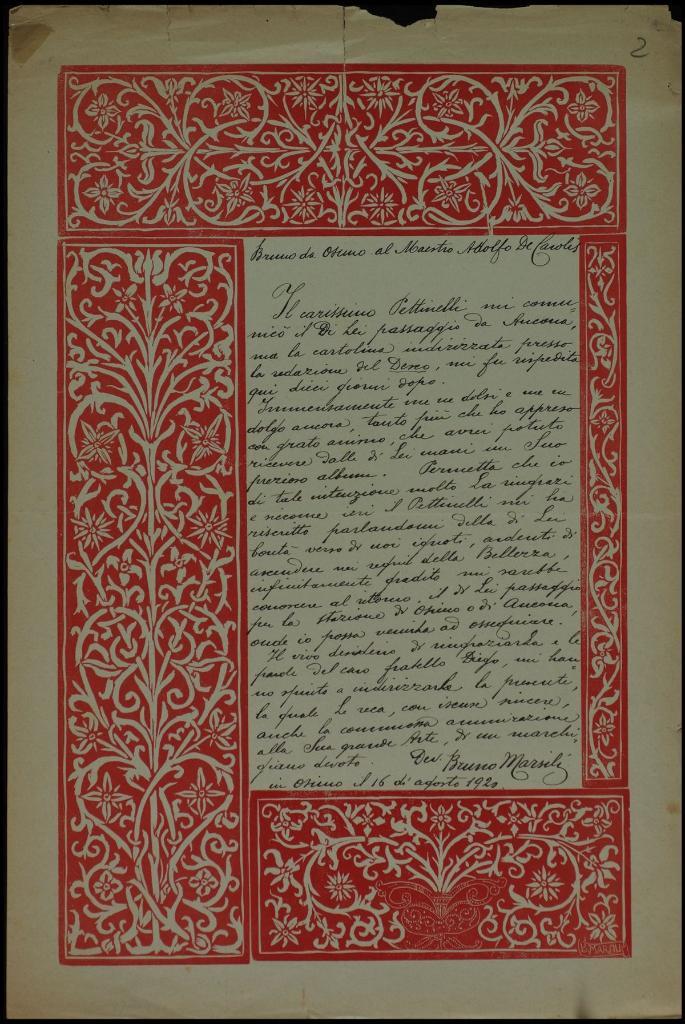 2
Bruno da Osimo al Maestro Adolfo De Carolis
Il carissimo Pettinelli mi comu=
nicò il Di Lei passaggio da Ancona,
ma la cartolina indirizzata presso
la redazione del Desco, mi fu rispedita
qui dieci giorni dopo.
Immensamente me ne dolsi e me ne
dolgo ancora, tanto più che ho appreso
con grato animo, che avrei potuto
ricevere dalle di Lei mani un Suo
prezioso album. Permetta che io
di tale intenzione molto La ringrazi
e siccome ieri il Pettinelli mi ha
riscritto parlandomi della di Lei
bontà verso di noi ignoti, ardenti di
ascendere nei regni della Bellezza,
infinitamente gradito mi sarebbe
conoscere al ritorno, il di Lei passaggio
per la stazione di Osimo o di Ancona,
onde io possa venirla ad ossequiare.
Il vivo desiderio di ringraziarla e le
parole del caro fratello Diego, mi han=
no spinto a indirizzarle la presente,
la quale Le reca, con scuse sincere,
anche la commossa ammirazione
alla Sua grande Arte, di un marchi=
giano devoto. Dev. Bruno Marsili
in Osimo il 16 di agosto 1920
B. MARSILI